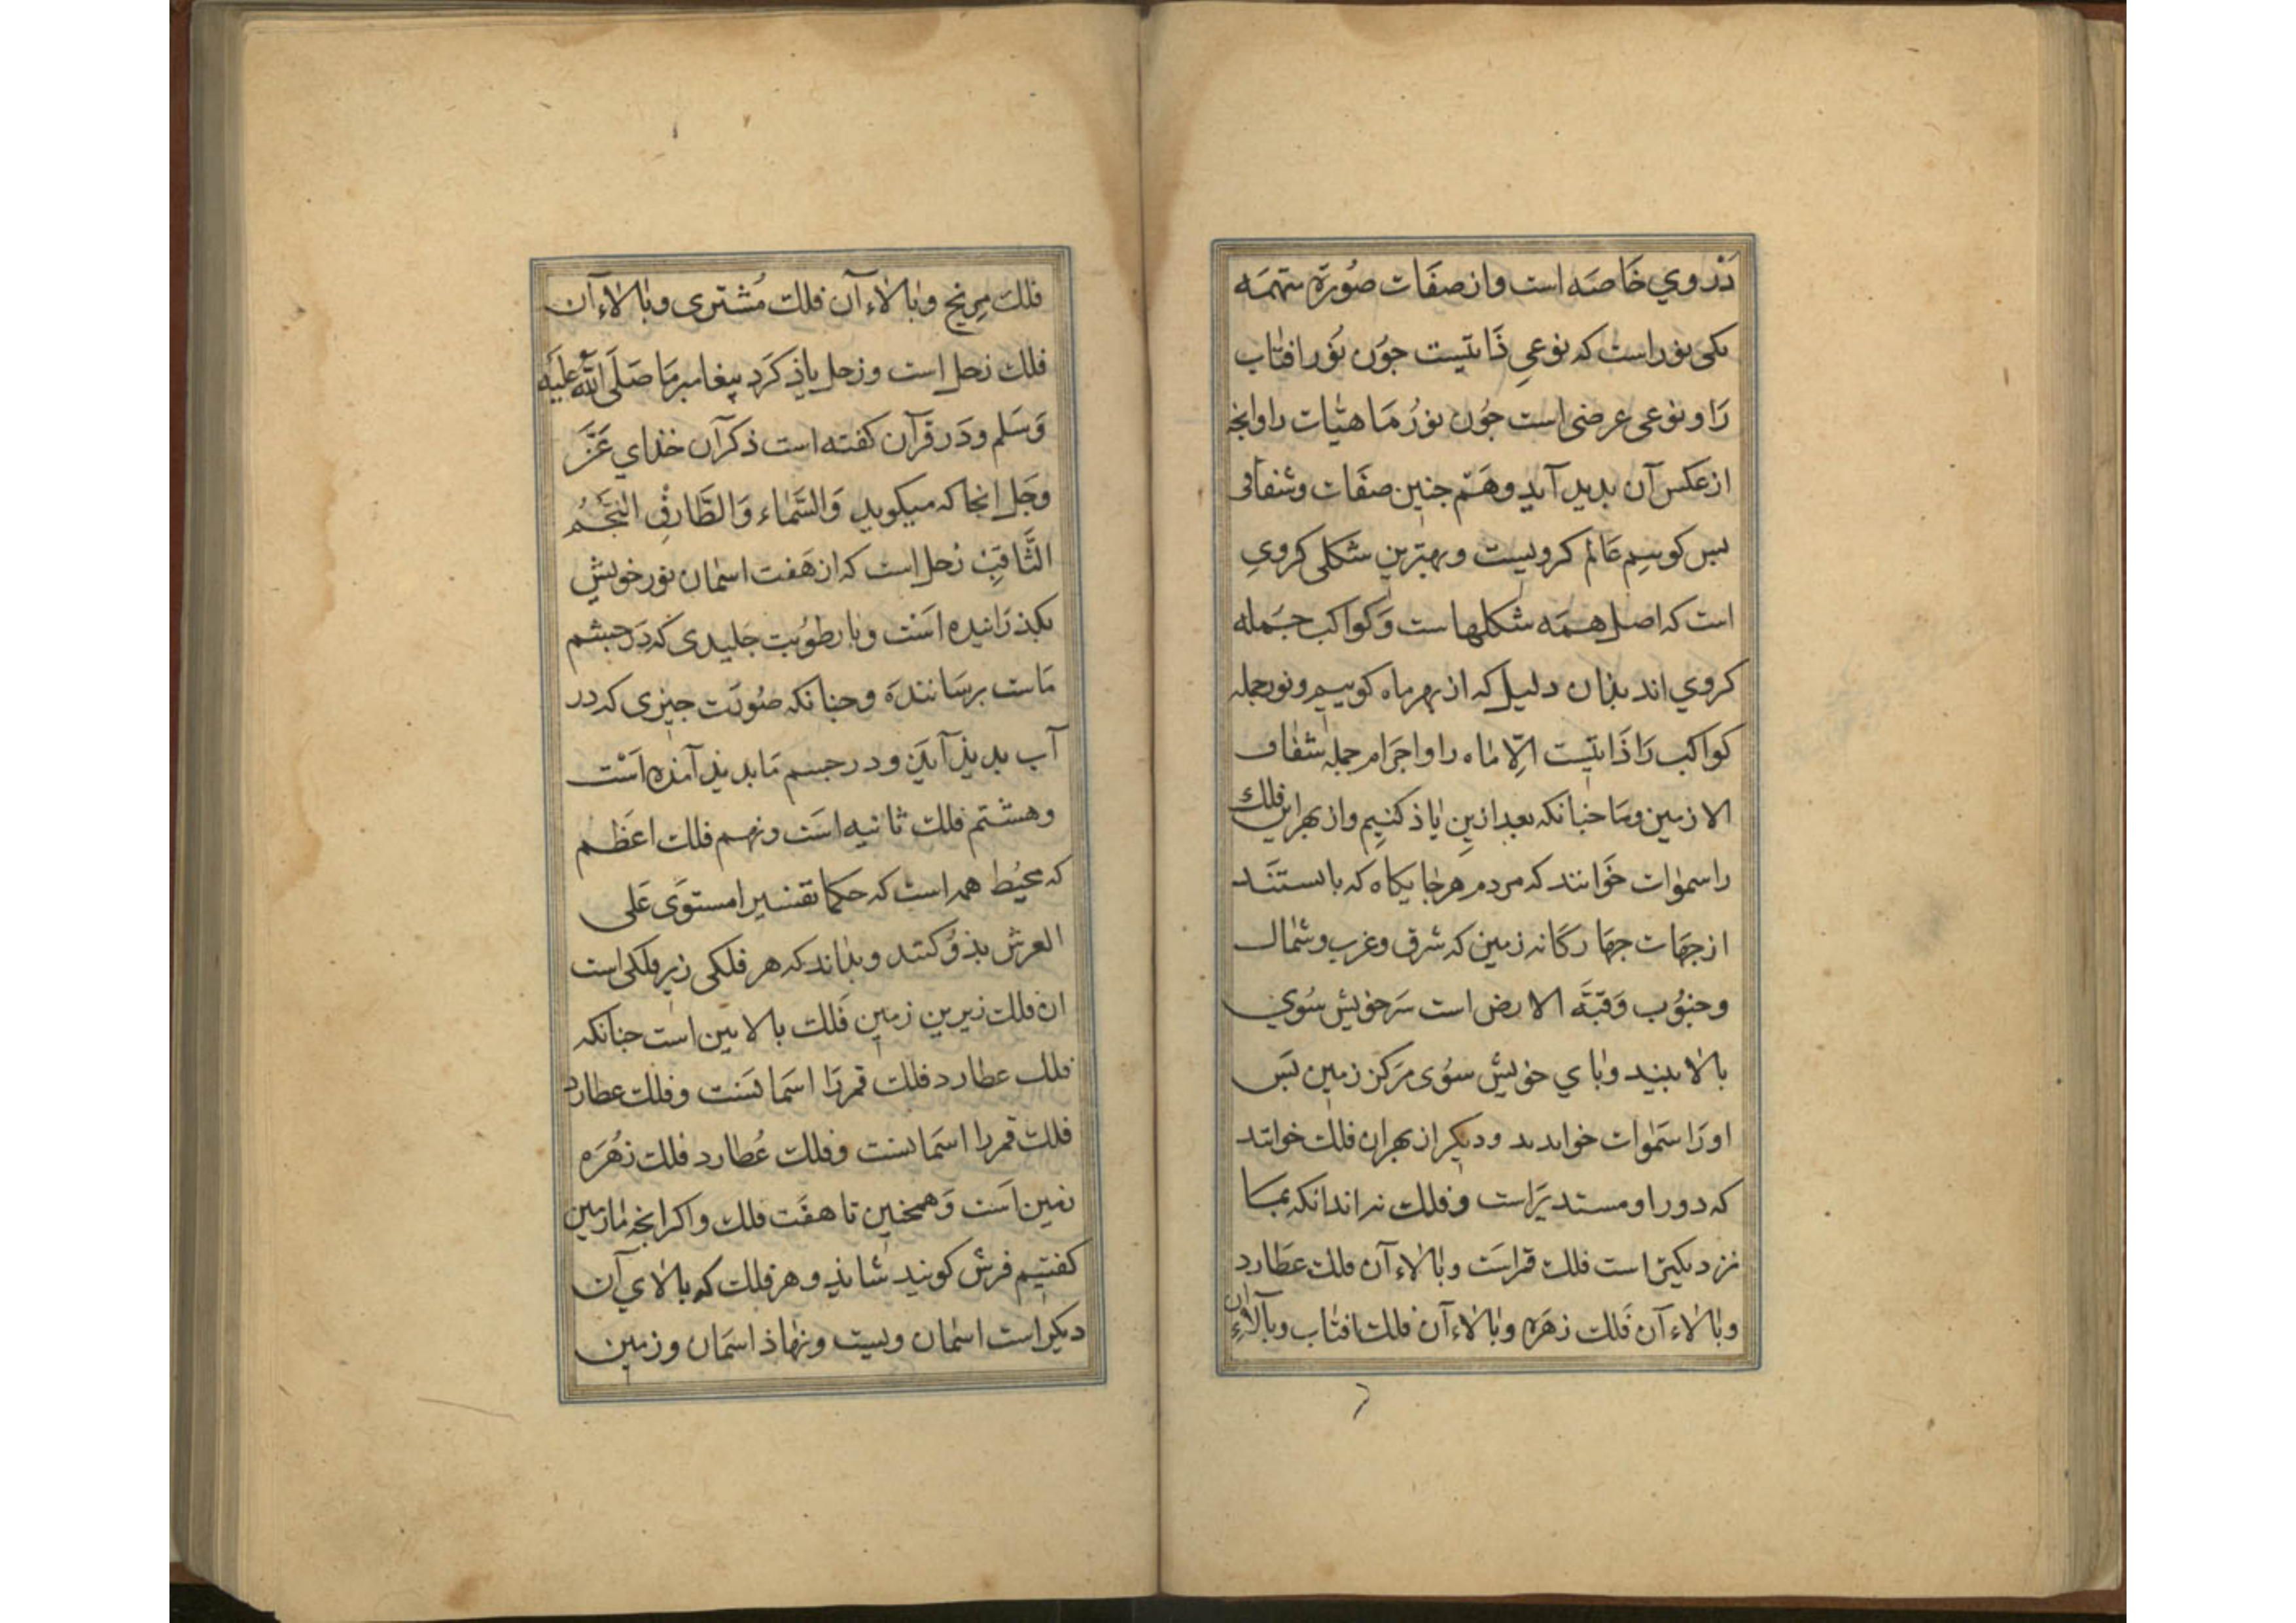 دَر وي خَاصه است وان صفَات صُورة متممه
یکی نور است که نوعیِ ذَاتیست جوُن نوُر افتاب
رَا و نوعی عرضی است جوُن نوُر مَاهتیات را وانجه
از عکس آن بدید آید وهَم جنین صفَات وشفافی
بس کوییم عَالم کرویست و بهترین شکلی کرویِ
است که اصل همَه شکلهاست وَکواکب جمَله
کروي اند بذان دلیل که از بهر ماه کوییم ونور جمله
کواکب رَا ذَاتیست اِلّا ماه را واجرَام جمله شفاف
الا زمین وما جنانکه بعد ازین یاذ کنیم واز بهر این فلك
را سموات خَوانند که مردم هر جایکاه که بایستند
از جهَات جهَارکانه زمین که شرق وغرب وشمال
وجنوُب وَقبَّة الارض است سَر خویش سُوي
بالا بیند وباي خویش سوُی مرَکز زمین بَس
او رَا سَموات خوانند ودیکر از بهر ان فلك خوانند
که دور او مستدیرَ است وفلك نه اند انکه بما
نزدیکترَ است فلك قمر استَ وبالاءِ آن فلك عطَارد
وبالاءِ آن فَلك زهَره وبالاءِ آن فلك افتاب وبالاءِ آن
فلك مِریخ وبالاءِ آن فلك مُشتری وبالاءِ آن
فلك زحل است وزحل یاذ کرَد پیغامبر مَا صَلَی اللّه علیَه
وَسَلم ودَر قرآن کفته است ذکر آن خذاي عَزَّ
وجَل انجا که میکوید وَالسَّماء وَالطَّارقِ النَّجمُ
الثَّاقبُ زُحل است که از هَفت اسمان نور خویش
بکذرَانیده استَ وبا رطوُبت جَلیدی که دَر جشم
مَاست برسَانندَه وجنانکه صُورَت جیزی که در
آب بدیذ آیَذ ودر جسم مَا بدیذ آمذه استَ
وهشتم فلك ثانیه استَ ونهم فلك اعَظم
که محیُط همه است که حکما تفسیر استوَی عَلی
العرش بذو کنند وبداند که هر فلکی زیر فلکی است
ان فلك زیرین زمین فَلك بالایین است جنانکه
فلك عطارد فلك قمر رَا اسمَانَست وفلك عطارد
فلك قمر را اسمَانست وفلك عُطارد فلك زُهَره
زمین استَ وَهمجنین تا هفَت فلك واکر انجه ما زمین
کفتیم فرش کویند شایذ وهر فلك که بالاي آن
دیکر است اسمان ویست ونهاذ اسمَان وزمین